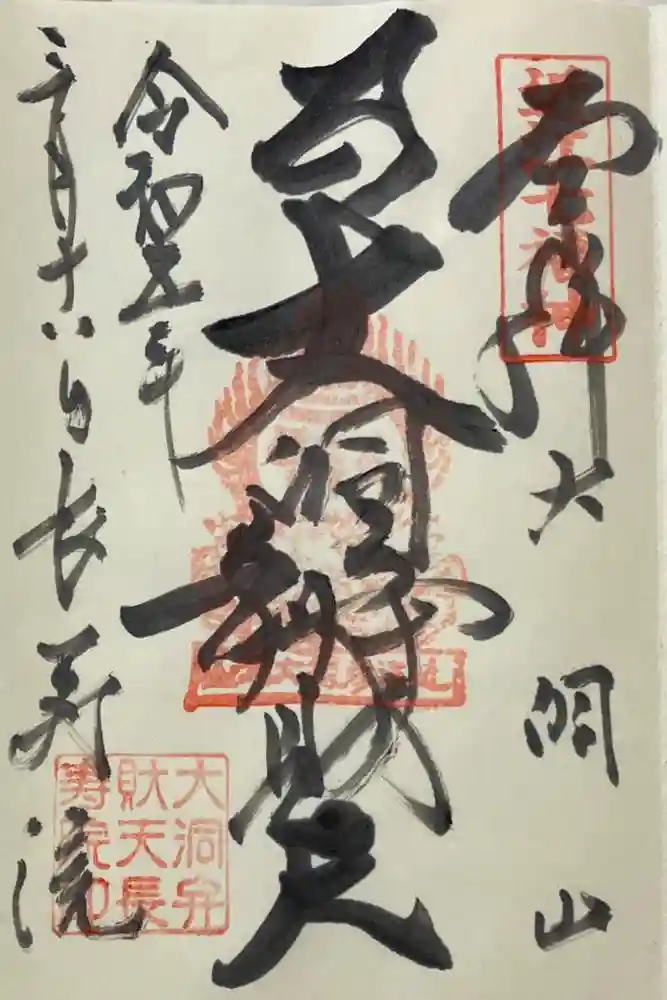 奉拝
大洞山
大洞辨財天
令和五年
三月十八日長寿院
大洞弁
財天長
寿院印